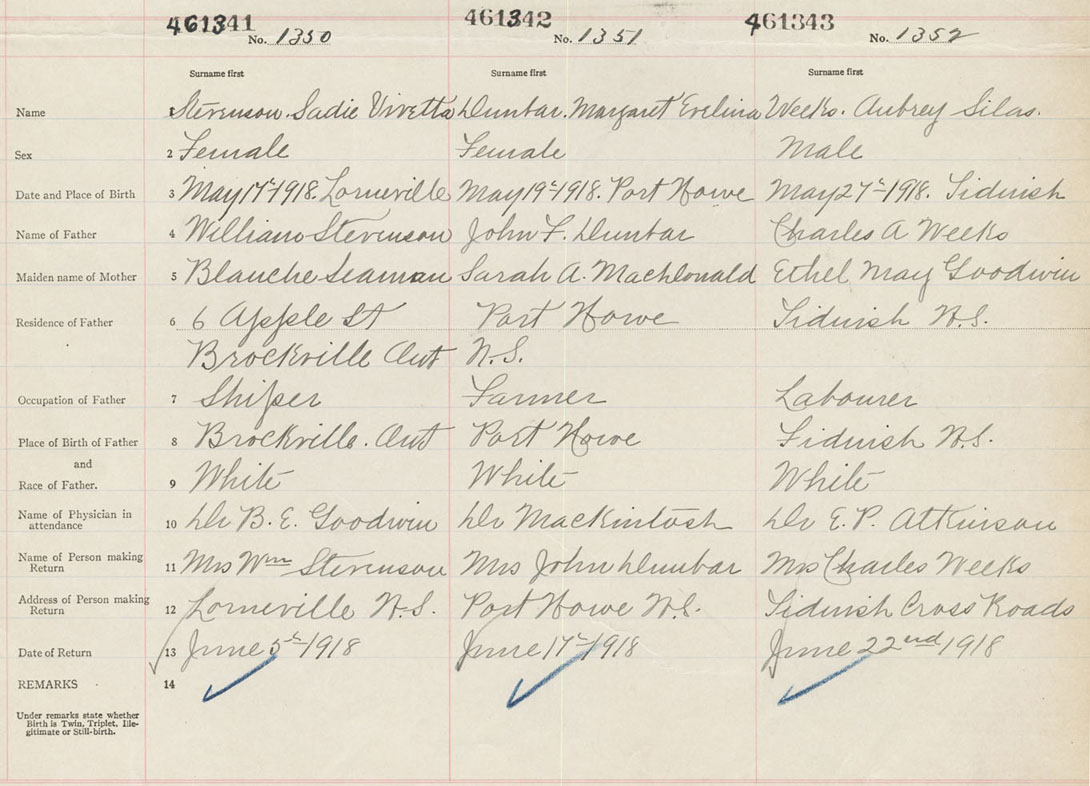 461341 461342 461343
No. 1350 No. 1351 No. 1352
Surname first Surname first Surname first
Name 1 Stevenson. Sadie Vivetta Dunbar. Margaret Evelina Weeks. Aubrey Silas.
Sex 2 Female Female Male
Date and Place of Birth 3 May 17th 1918. Lorneville May 19th 1918. Port Howe May 27th 1918. Tidnish
Name of Father 4 William Stevenson John F. Dunbar Charles A Weeks
Maiden name of Mother 5 Blanche Seaman Sarah A. MacDonald Ethel May Goodwin
Residence of Father 6 6 Apple St Port Howe Tidnish N.S.
Brockville Ont N.S.
Occupation of Father 7 Shiper Farmer Labourer
Place of Birth of Father 8 Brockville. Ont Port Howe Tidnish N.S.
and
Race of Father. 9 White White White
Name of Physician in
attendance 10 Dr B. E. Goodwin Dr Mackintosh Dr E. P. Atkinson
Name of Person making
Return 11 Mrs Wm Stevenson Mrs John Dunbar Mrs Charles Weeks
Address of Person making
Return 12 Lorneville N.S. Port Howe N.S. Tidnish Cross Roads
Date of Return 13 June 5th 1918 June 17th 1918 June 22nd 1918
REMARKS 14
Under remarks state whether
Birth is Twin, Triplet, Ille-
gitimate or Still-birth.